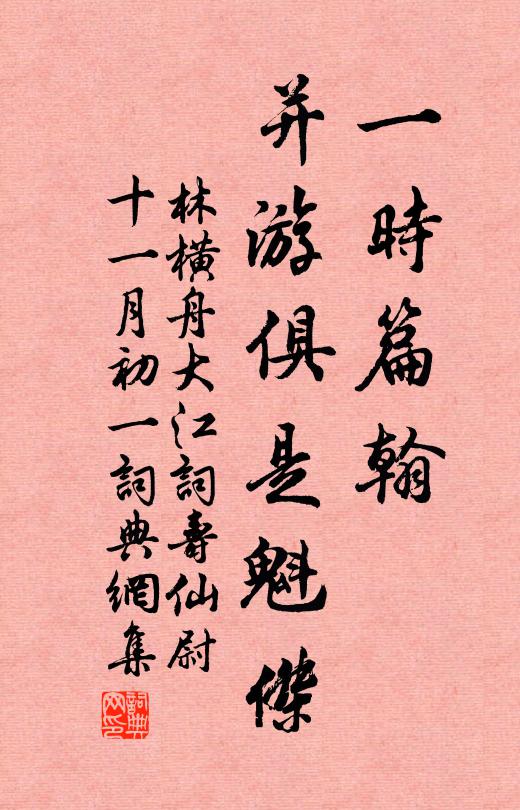 一時篇翰
并游俱是魁傑
林橫舟大江詞壽仙尉
十一月初一詞典網集
詞典
网印